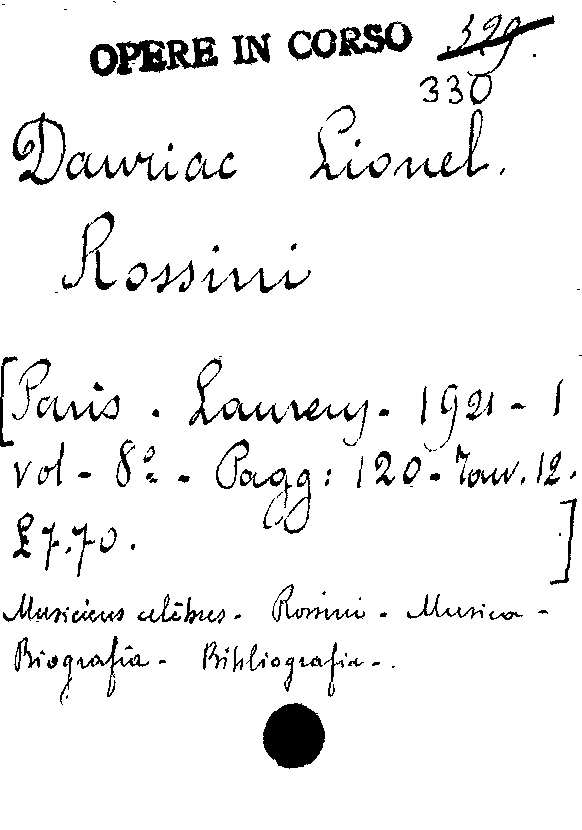 OPERE IN CORSO 329.
330
Dauriac Lionel.
Rossini
[Paris. Laurens - 1921 - 1
vol - 8º - Pagg: 120 - Tav. 12.
£ 7.70. ]
Musiciens célèbres - Rossini - Musica -
Biografia - Bibliografia - .